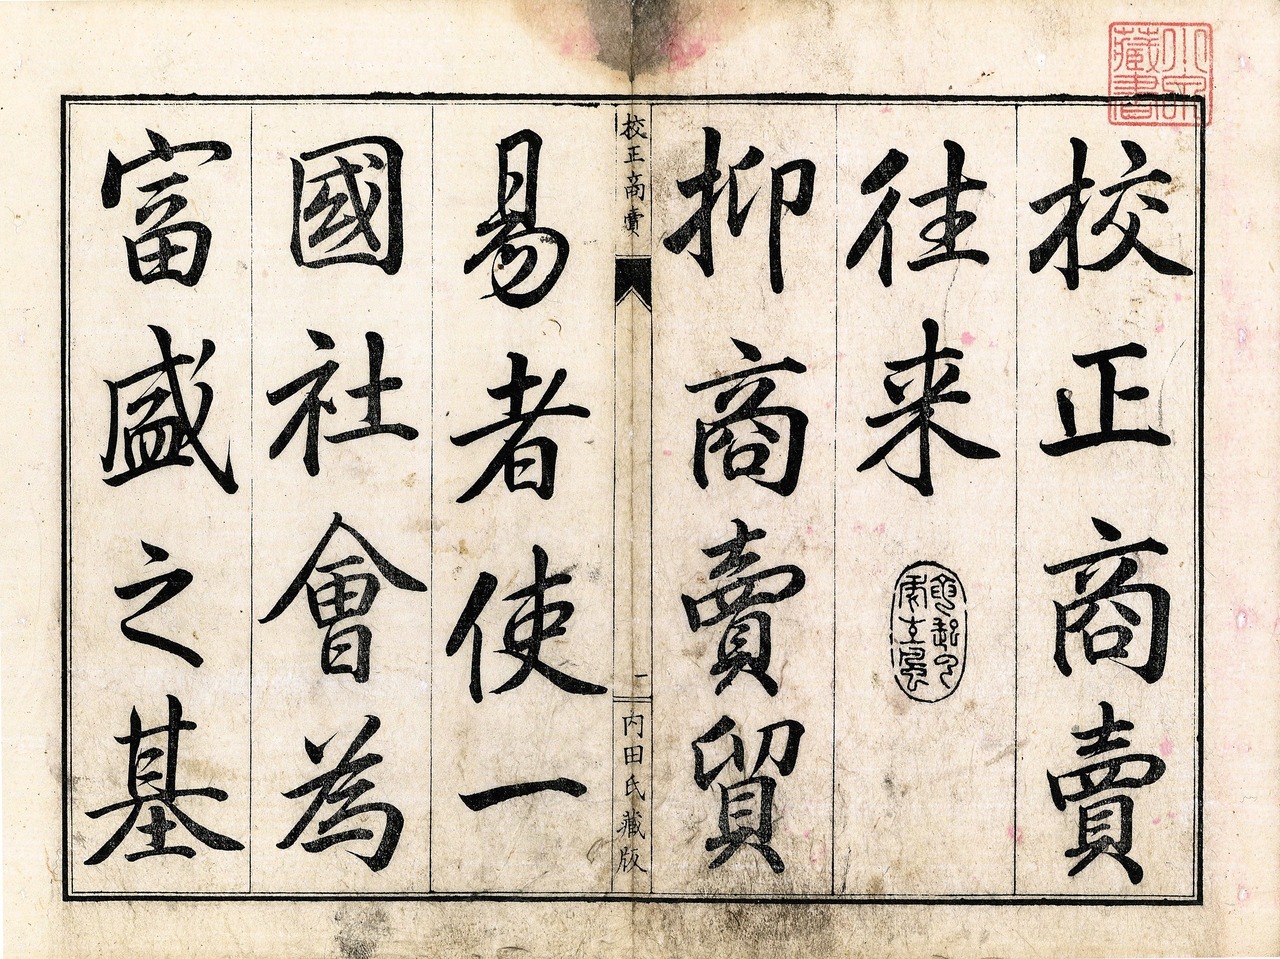 校正商賣
往来
抑商賣貿
校正商賣
一
内田氏藏版
易者使一
國社會為
富盛之基